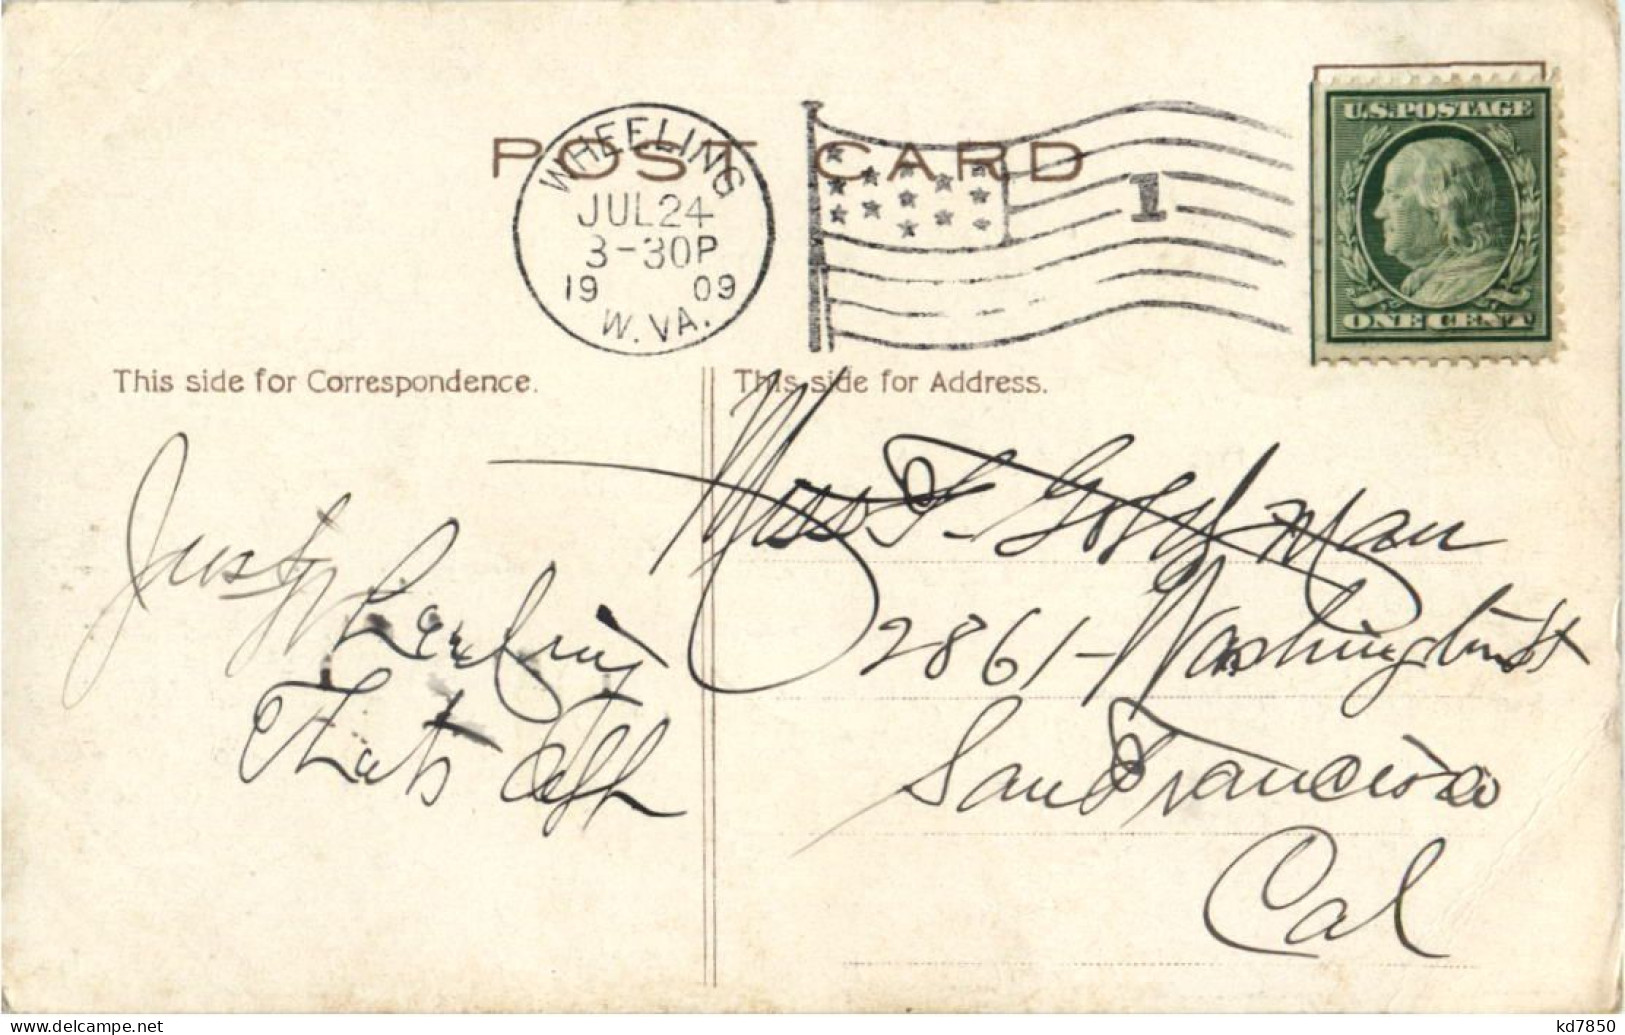 POST CARD
WHEELING
JUL 24
3-30P
19 09
W. VA.
1
U.S. POSTAGE
ONE CENT
This side for Correspondence.
This side for Address.
Just
Thats all
Miss F. Goldman
2861-Washington St
San Francisco
Cal
kd7850